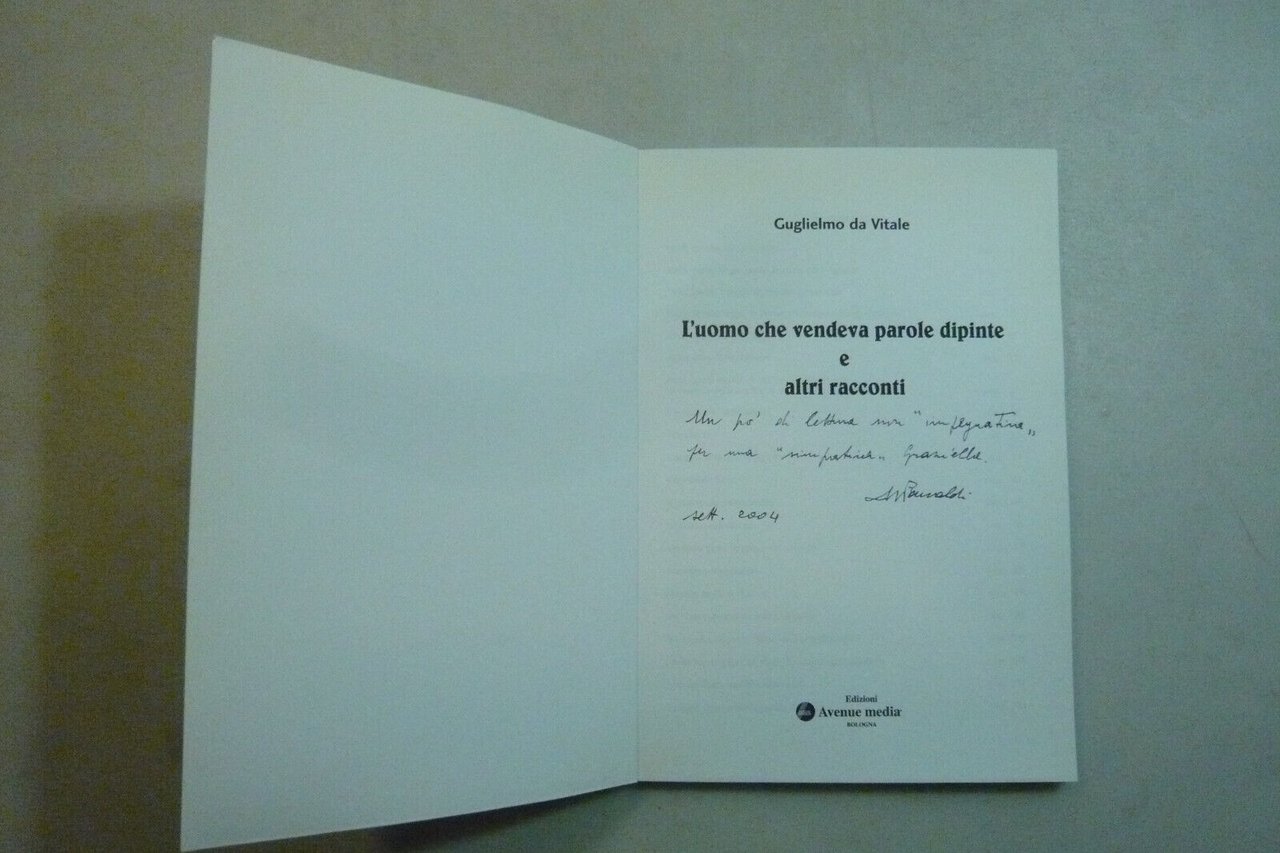 Guglielmo da Vitale
L'uomo che vendeva parole dipinte
e
altri racconti
Un po' di lettura non "impegnativa„
per una "simpatica„ Graziella.
sett. 2004
Edizioni
Avenue media
BOLOGNA